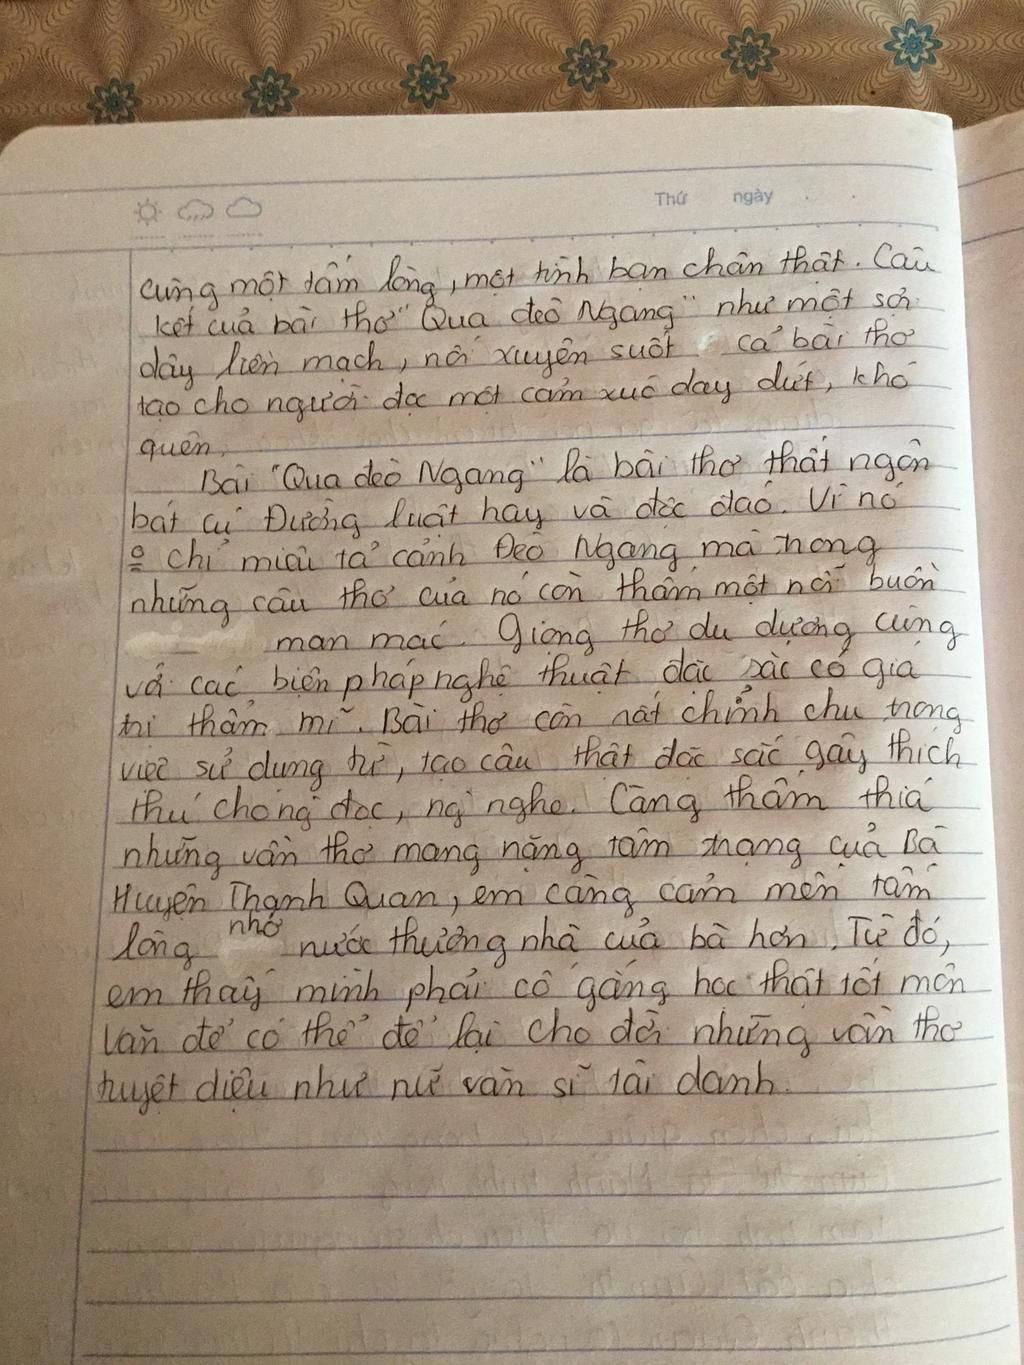 Thứ ngày
cùng một tấm lòng, một tình bạn chân thật. Câu
kết của bài thơ "Qua đèo Ngang" như một sợi
dây liền mạch, nối xuyên suốt cả bài thơ
tạo cho người đọc một cảm xúc day dứt, khó
quên.
Bài "Qua đèo Ngang" là bài thơ thất ngôn
bát cú Đường luật hay và độc đáo. Vì nó
o chỉ miêu tả cảnh Đèo Ngang mà trong
những câu thơ của nó còn thấm một nỗi buồn
man mác. Giọng thơ du dương cùng
với các biện pháp nghệ thuật đặc sắc có giá
trị thẩm mĩ. Bài thơ còn rất chỉnh chu trong
việc sử dụng từ, tạo câu thật đặc sắc gây thích
thú cho ng đọc, ng nghe. Càng thấm thía
những vần thơ mang nặng tâm trạng của Bà
Huyện Thanh Quan, em càng cảm mến tấm
lòng nhớ nước thương nhà của bà hơn. Từ đó,
em thấy mình phải cố gắng học thật tốt môn
Văn để có thể để lại cho đời những vần thơ
tuyệt diệu như nữ văn sĩ tài danh.